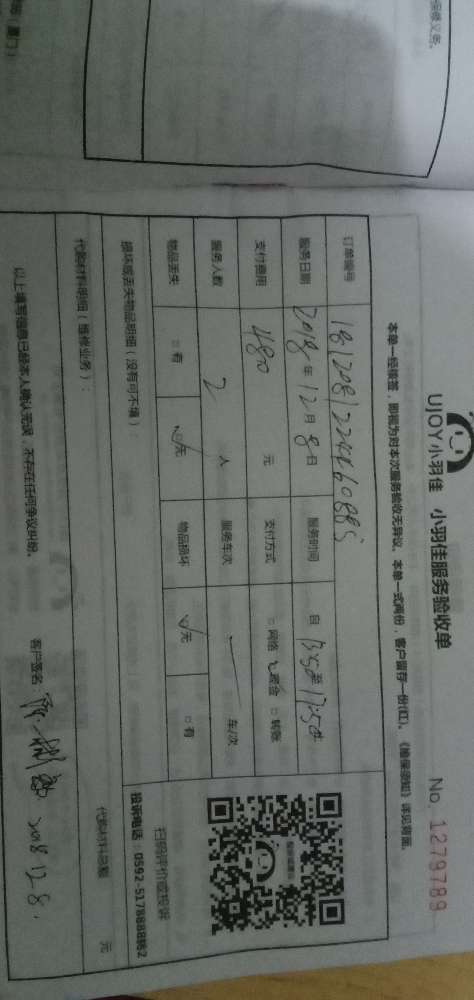 保修义务。
UJOY小羽佳 小羽佳服务验收单 No. 1279789
本单一经接签，即视为对本次服务验收无异议。本单一式两份，客户留存一份(红)。《维保须知》详见背面。
订单编号
服务日期 2018年12月8日 服务时间 自13:50至17:50
支付费用 480元 支付方式 □网络 ☑现金 □转账
服务人数 2人 服务车次 车/次
物品丢失 □有 ☑无 物品损坏 ☑无 □有
损坏或丢失物品明细（没有可不填）：
扫码评价或投诉
投诉电话：0592-5178888转2
代购材料明细（维修业务）： 代购材料总额 元
以上填写信息已经本人确认无误，不存在任何争议纠纷。
客户签名： 2018 12.8.